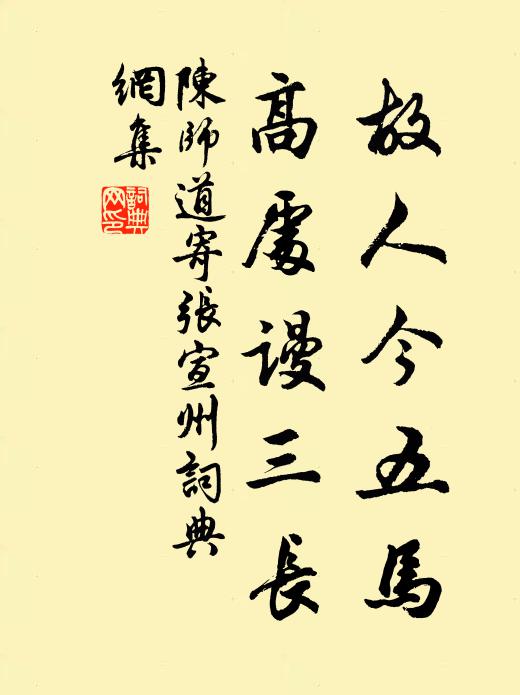 故人今五馬
高處謾三長
陳師道寄張宣州詞典
網集
詞典
网印